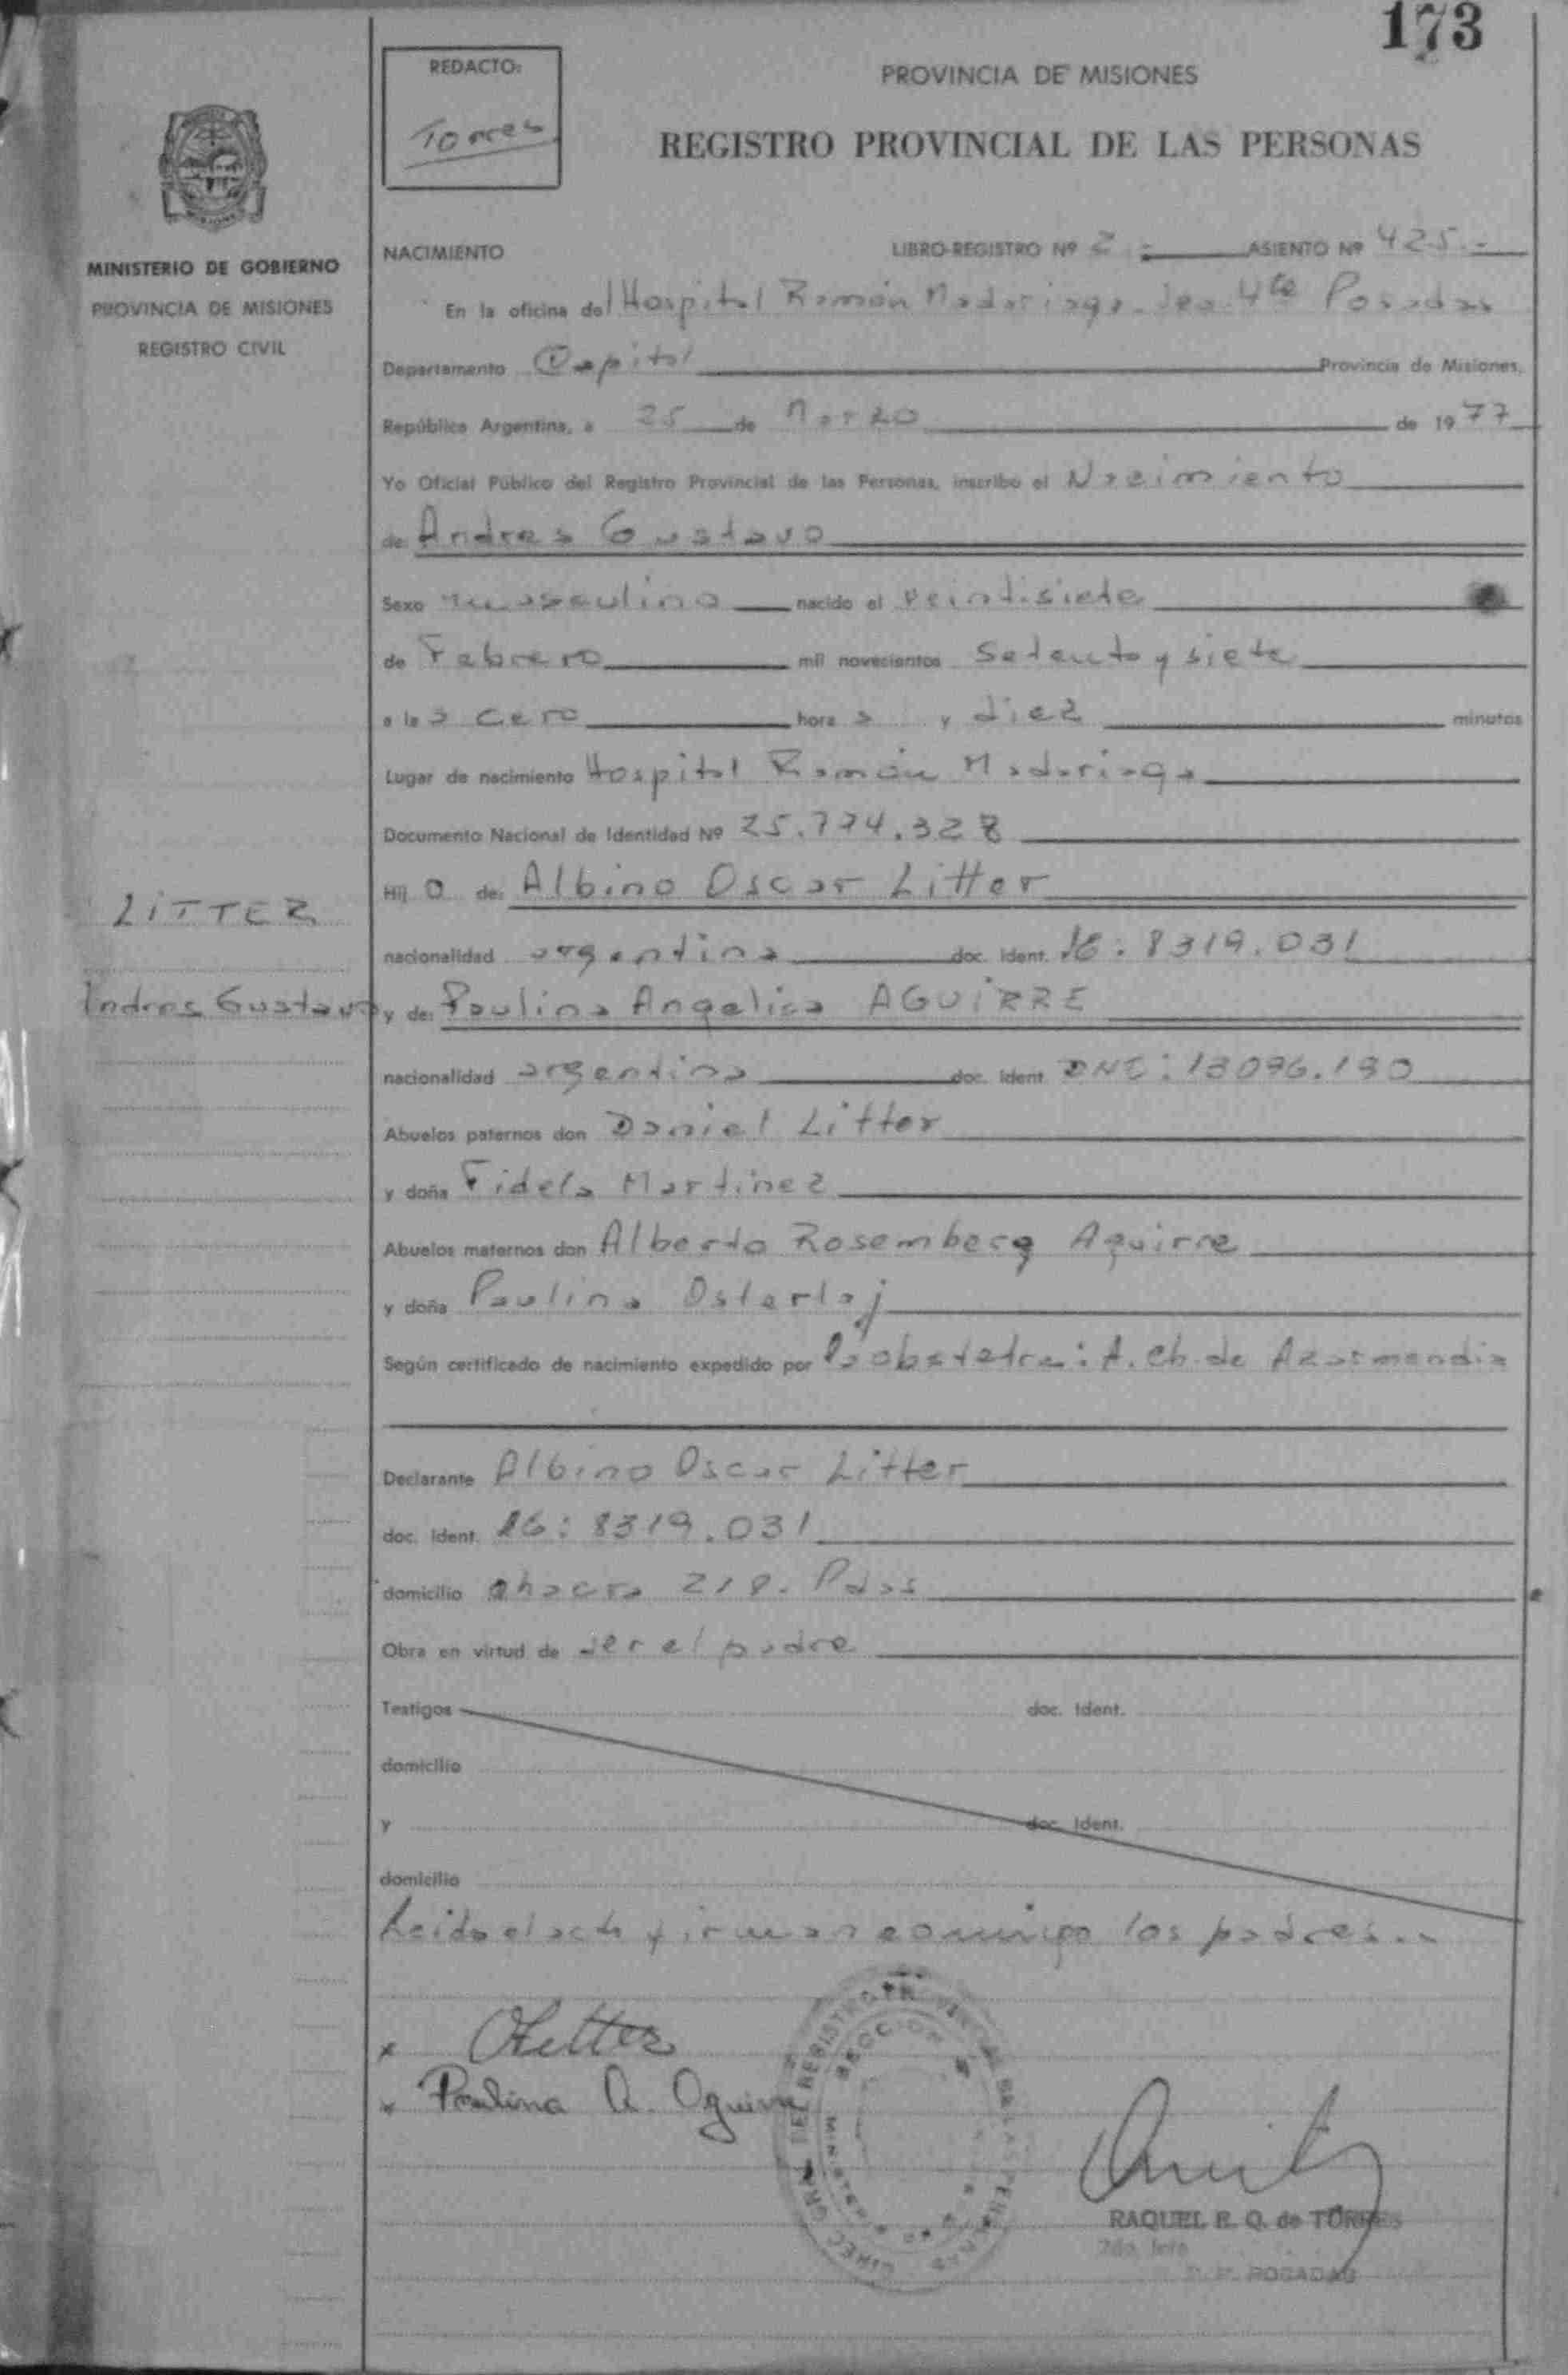 173
REDACTO:
Torres
PROVINCIA DE MISIONES
REGISTRO PROVINCIAL DE LAS PERSONAS
MINISTERIO DE GOBIERNO
PROVINCIA DE MISIONES
REGISTRO CIVIL
NACIMIENTO LIBRO-REGISTRO Nº 2.- ASIENTO Nº 425.-
En la oficina del Hospital Ramón Madariaga - Posadas
Departamento Capital Provincia de Misiones,
República Argentina, a 25 de Marzo de 1977
Yo Oficial Público del Registro Provincial de las Personas, inscribo el Nacimiento
de: Andres Gustavo
Sexo masculino nacido el veintisiete
de Febrero mil novecientos setenta y siete
a las cero horas y diez minutos
Lugar de nacimiento Hospital Ramón Madariaga
Documento Nacional de Identidad Nº 25.774.328
Hijo de: Albino Oscar Litter
LITTER
nacionalidad argentina doc. Ident. LE: 8319.031
Andres Gustavo
y de: Paulina Angelica AGUIRRE
nacionalidad argentina doc. Ident DNI: 13096.190
Abuelos paternos don Daniel Litter
y doña Fidela Martinez
Abuelos maternos don Alberto Rosemberg Aguirre
y doña Paulina Osterlaj
Según certificado de nacimiento expedido por la obstetra: A. Ch. de Azarmendia
Declarante Albino Oscar Litter
doc. Ident. LE: 8319.031
domicilio chacra 218. Pdas
Obra en virtud de ser el padre
Testigos doc. Ident.
domicilio
y doc. Ident.
domicilio
Leida el acta firman conmigo los padres..
x OLitter
x Paulina A. Aguirre
DIREC GRAL DEL REGISTRO PROVINCIAL DE LAS PERSONAS
SECCION
RAQUEL E. Q. de TORRES
POSADAS